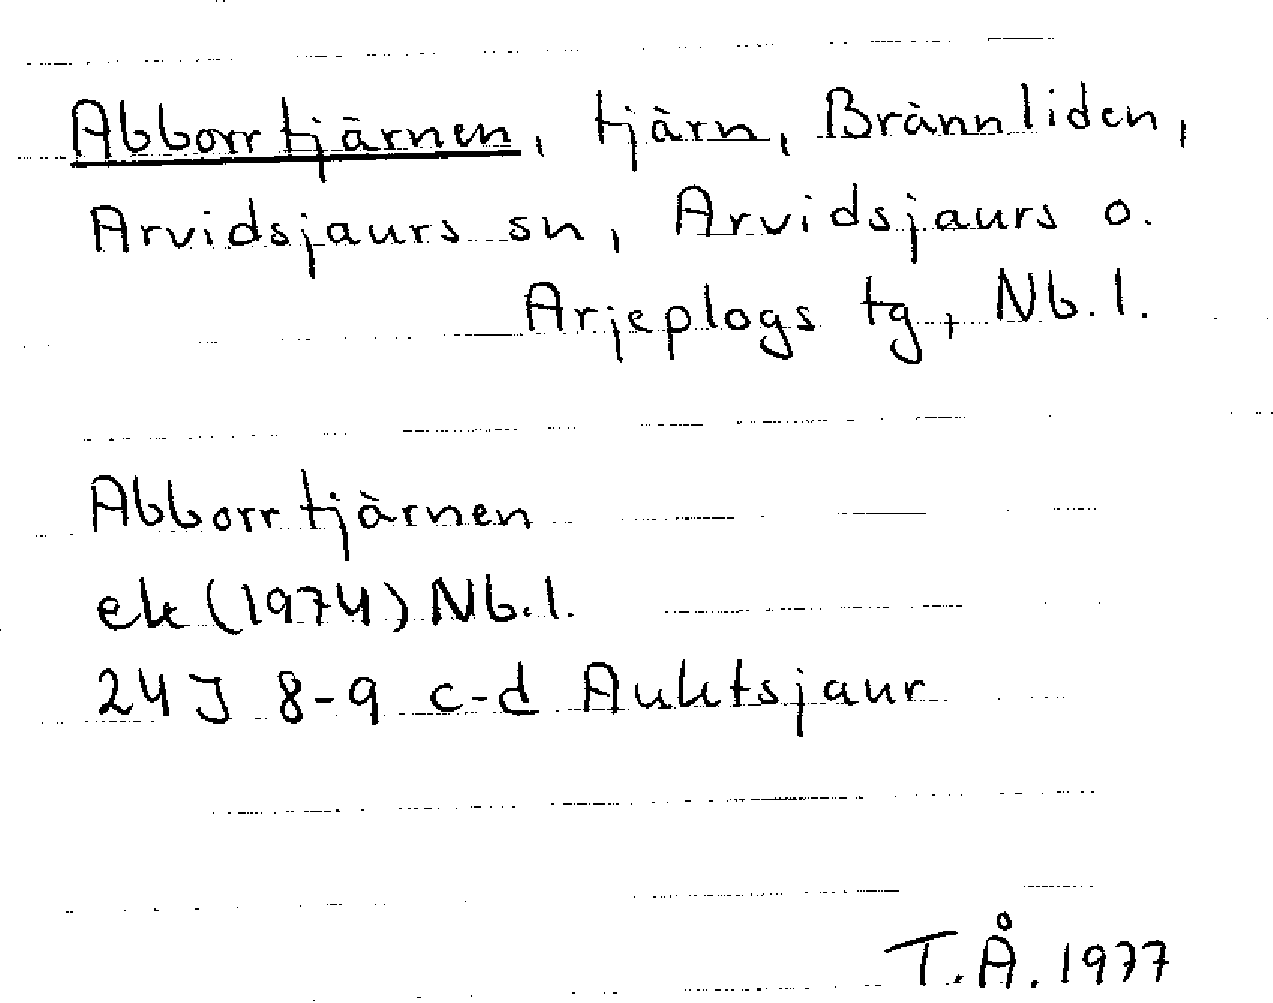 Abborrtjärnen, tjärn, Brännliden,
Arvidsjaurs sn, Arvidsjaurs o.
Arjeplogs tg, Nb. l.
Abborrtjärnen
ek (1974) Nb. l.
24 J 8-9 c-d Auktsjaur
T.Å. 1977